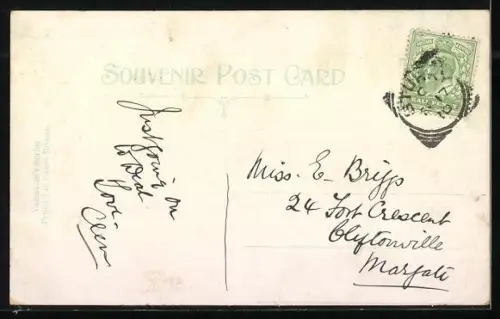 SOUVENIR POST CARD
Just going on
to Deal
Love
Miss. E. Briggs
24 Fort Crescent
Cliftonville
Margate